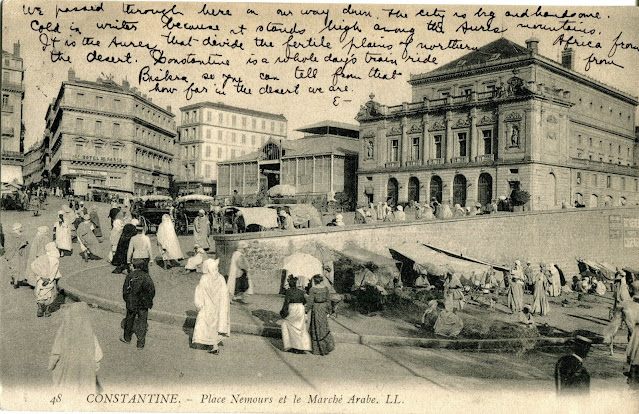 We passed through here on our way down. The city is big and handsome.
Cold in winter because it stands high among the Aures mountains.
It is the Aures that divide the fertile plains of northern Africa from
the desert. Constantine is a whole day's train ride from
Biskra so you can tell from that
how far in the desert we are.
E-
HOTEL DE PARIS
48 CONSTANTINE. - Place Nemours et le Marché Arabe. LL.